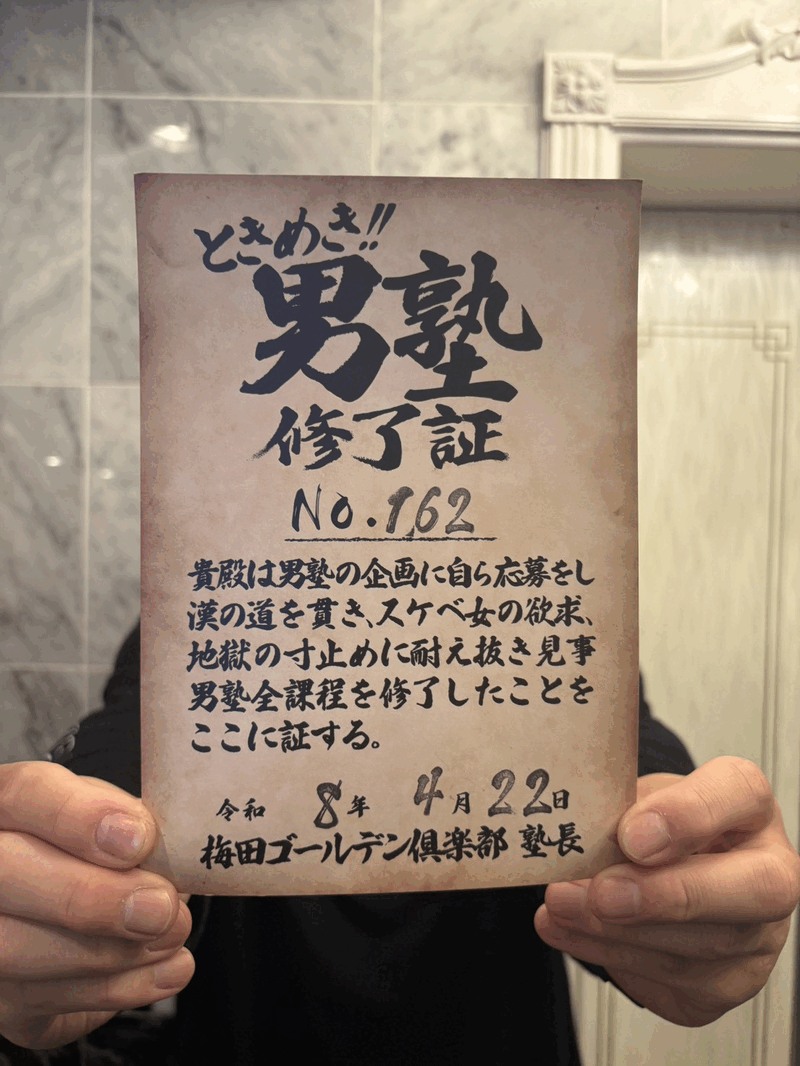 ときめき!!
男塾
修了証
No.162
貴殿は男塾の企画に自ら応募をし
漢の道を貫き、スケベ女の欲求、
地獄の寸止めに耐え抜き見事
男塾全課程を修了したことを
ここに証する。
令和 8年 4月 22日
梅田ゴールデン倶楽部 塾長